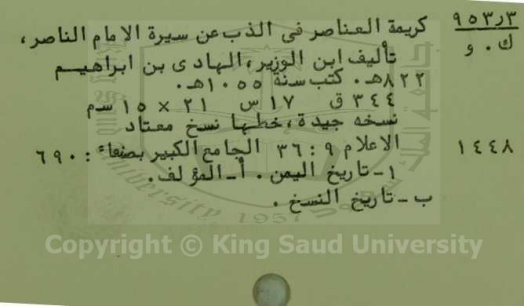 ٩٥٣ر٣ كريمة العناصر فى الذب عن سيرة الامام الناصر،
ك٠و تأليف ابن الوزير، الهادى بن ابراهيم
٨٢٢هـ٠ كتب سنة ١٠٥٥هـ٠
٣٤٤ ق ١٧ س ٢١ × ١٥ سم
نسخه جيدة، خطها نسخ معتاد
١٤٤٨ الاعلام ٩ : ٣٦ الجامع الكبير بصنعاء : ٦٩٠
١ـ تاريخ اليمن ٠ أـ المؤلف ٠
ب ـ تاريخ النسخ ٠
1957
University
Copyright © King Saud University